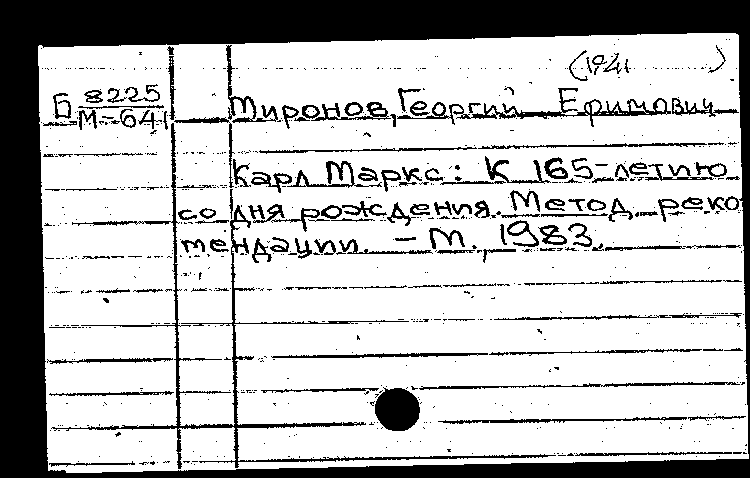 (1941 )
Б 8225
М-641 Миронов, Георгий Ефимович
Карл Маркс: К 165-летию
со дня рождения. Метод. реко
мендации. - М., 1983.